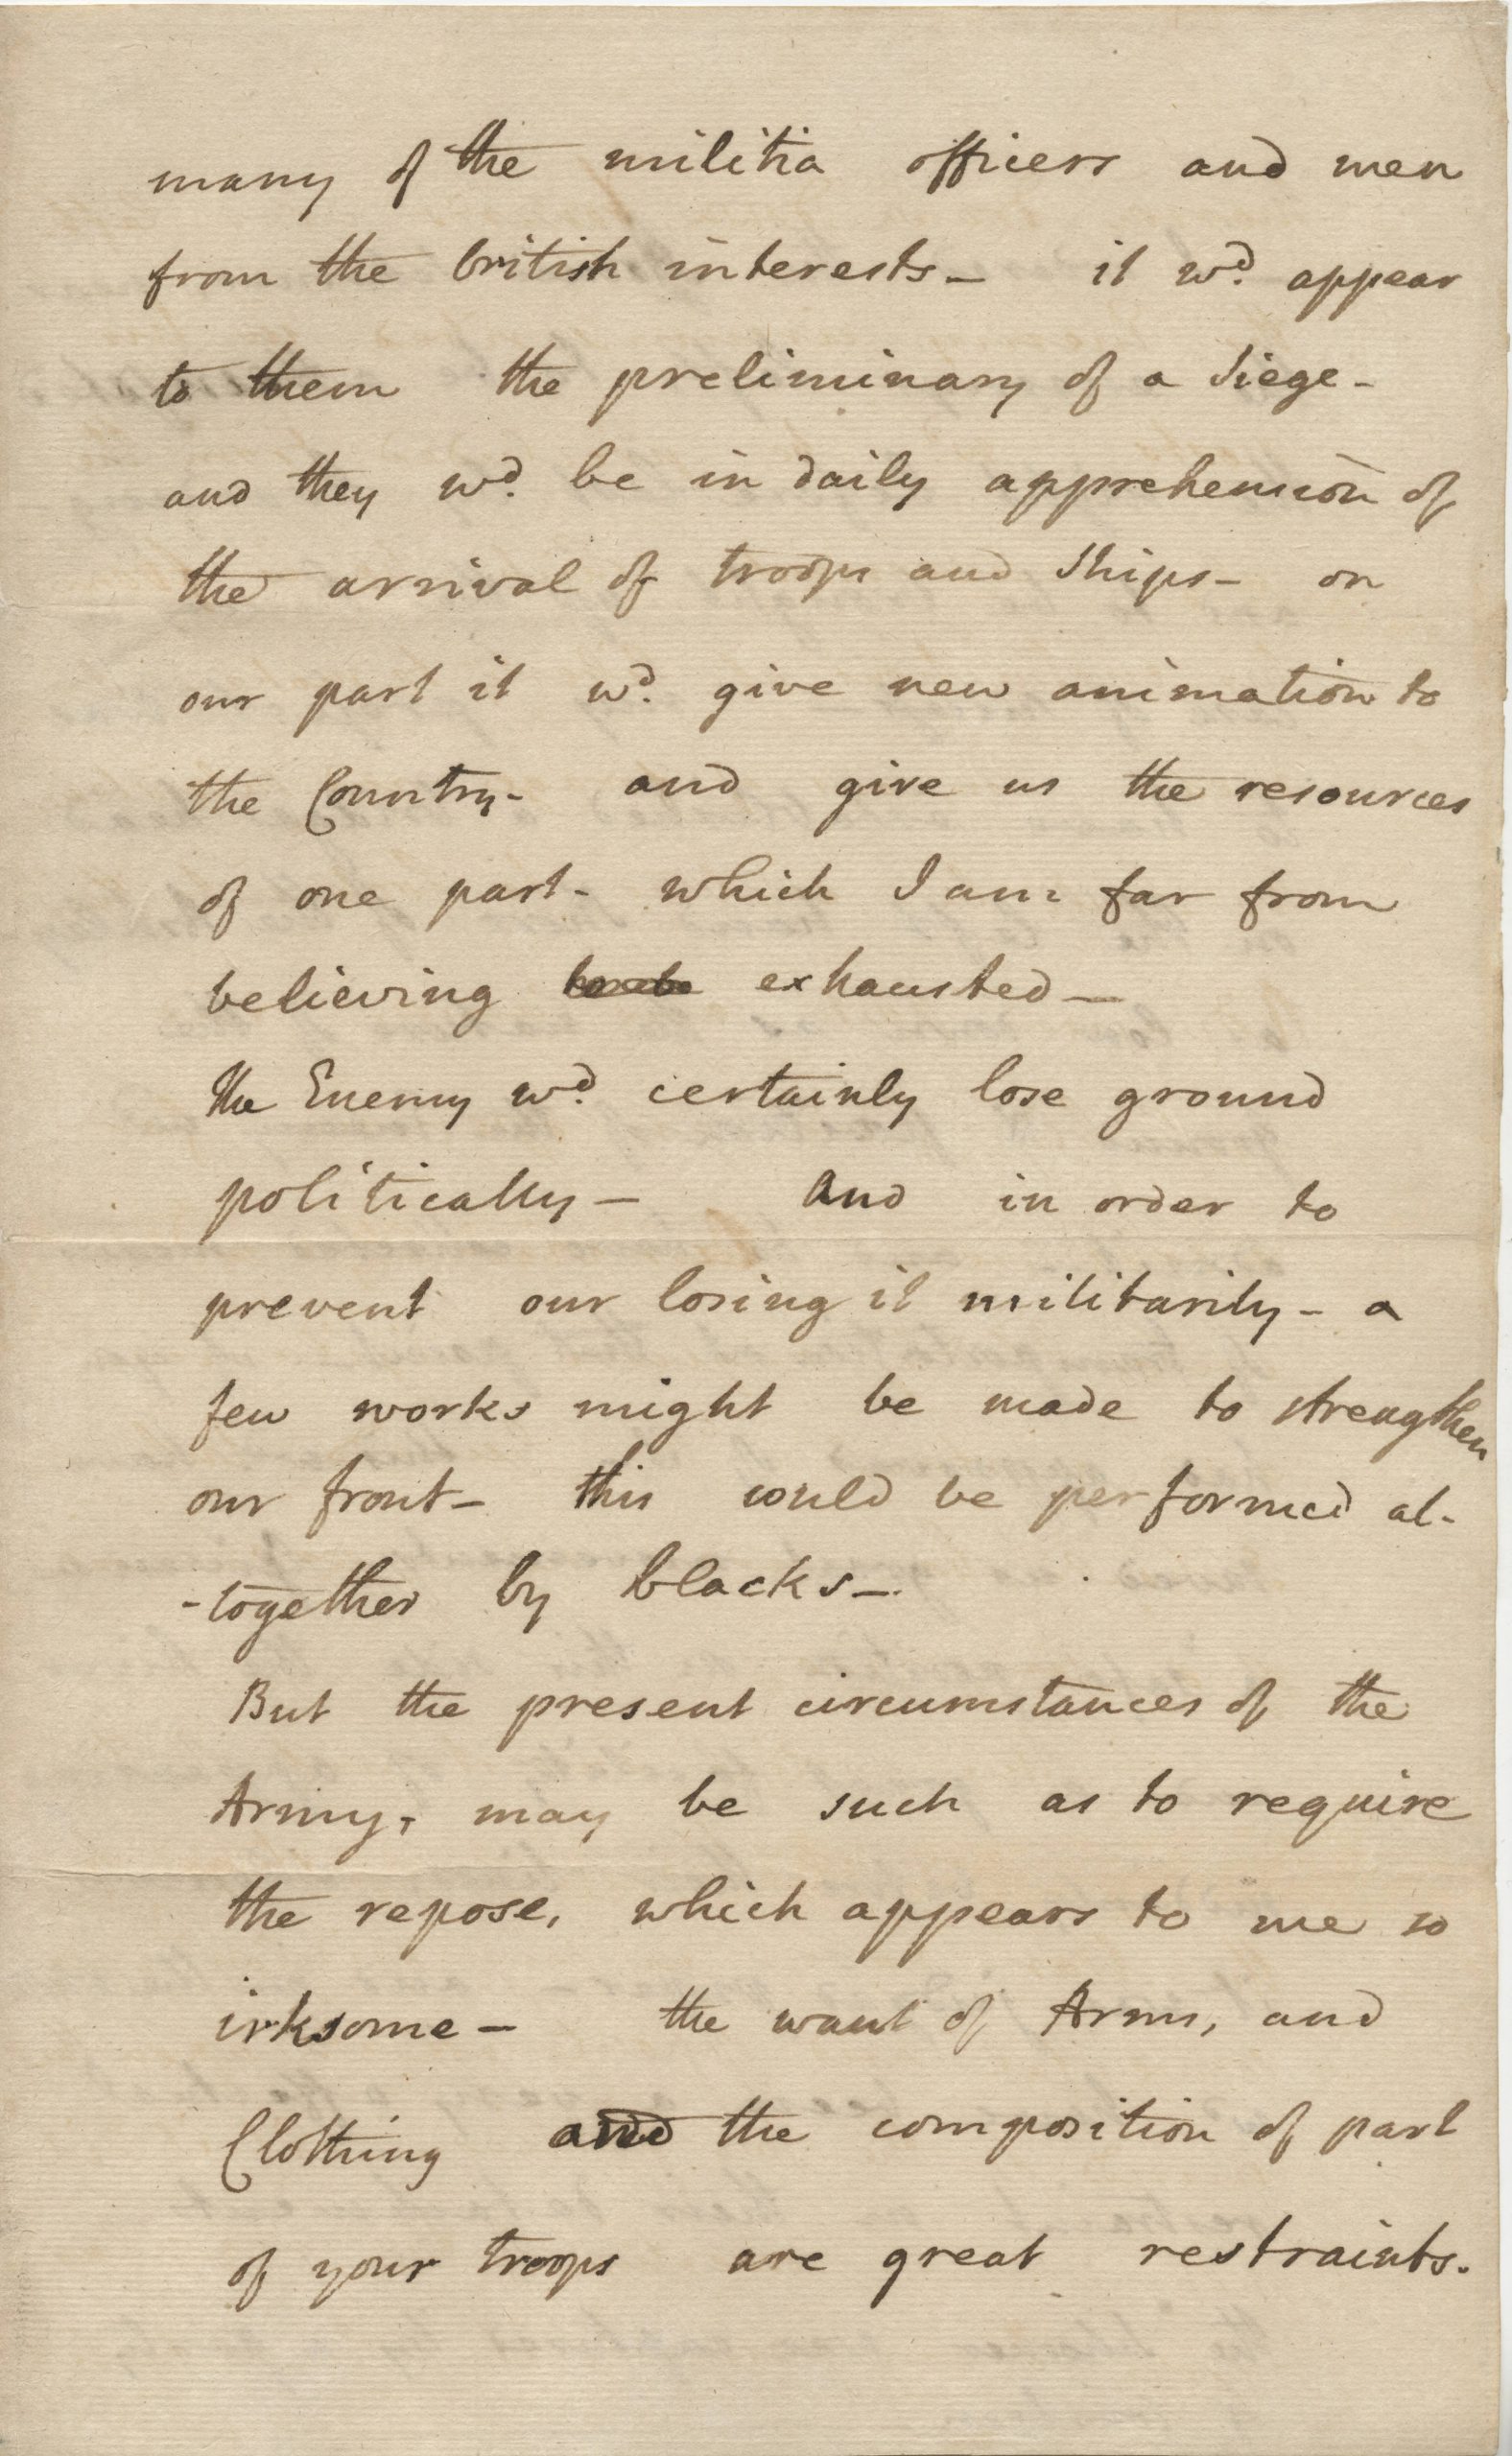 many of the militia officers and men
from the british interests - it wd. appear
to them the preliminary of a Siege -
and they wd. be in daily apprehension of
the arrival of troops and Ships - on
our part it wd. give new animation to
the Country - and give us the resources
of one part - which I am far from
believing exhausted —
the Enemy wd. certainly lose ground
politically — And in order to
prevent our losing it militarily - a
few works might be made to strengthen
our front - this could be performed al-
-together by blacks —
But the present circumstances of the
Army, may be such as to require
the repose, which appears to me so
irksome — the want of Arms, and
Clothing and the composition of part
of your troops are great restraints.